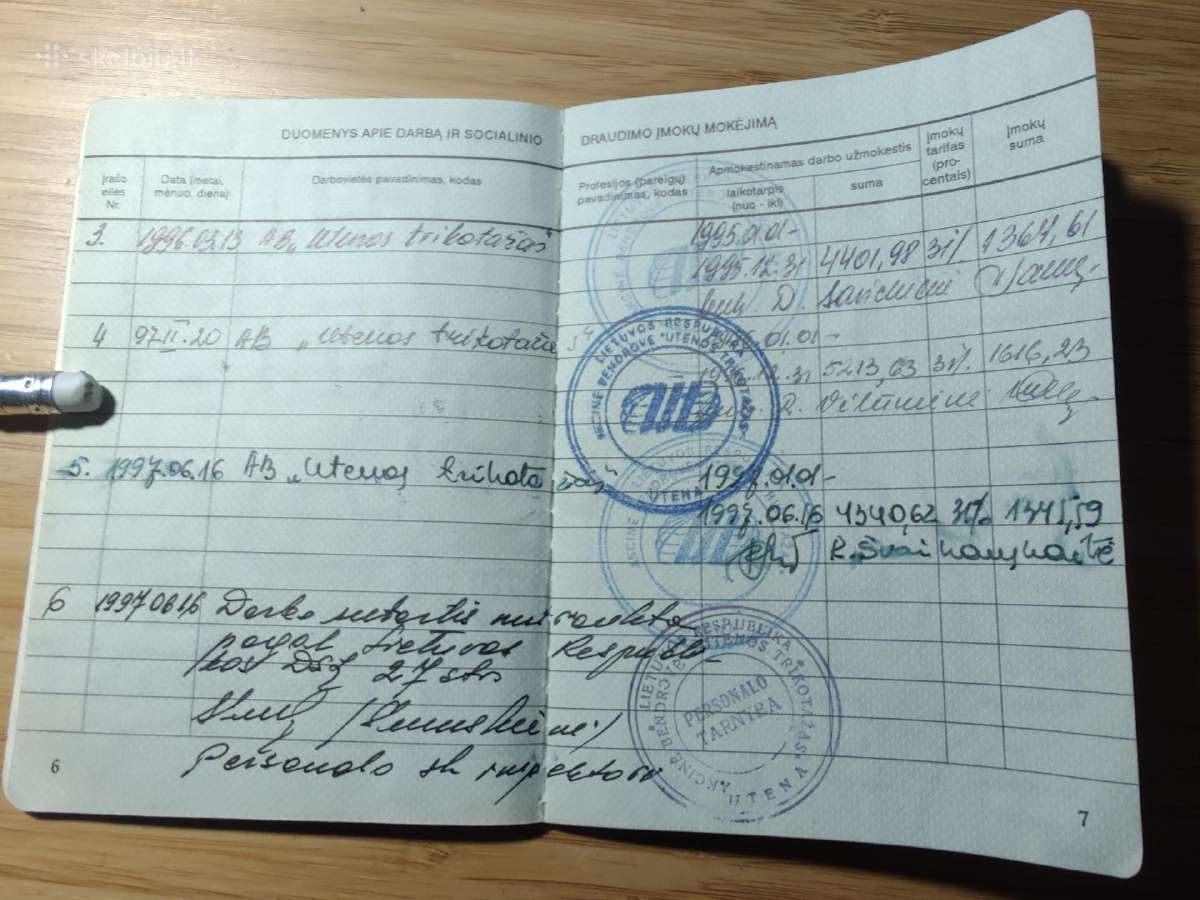 skelbiu.lt
DUOMENYS APIE DARBĄ IR SOCIALINIO DRAUDIMO ĮMOKŲ MOKĖJIMĄ
Įrašo eilės Nr.
Data (metai, mėnuo, diena)
Darbovietės pavadinimas, kodas
Profesijos (pareigų) pavadinimas, kodas
Apmokestinamas darbo užmokestis
laikotarpis (nuo - iki)
suma
Įmokų tarifas (procentais)
Įmokų suma
3. 1996.03.13 AB „Utenos trikotažas" 1995.01.01-
1995.12.31 4401,98 31% 1364,61
D.
4 97.II.20 AB „Utenos trikotažas" 01.01-
12.31 5213,63 31% 1616,23
R.
5. 1997.06.16 AB „Utenos trikotažas" 1997.01.01-
1997.06.16 4340,62 31% 1345,59
R.
6 1997 06 16 Darbo sutartis nutraukta
pagal Lietuvos Respubli-
kos DSĮ 27 str
Personalo inspektorė
LIETUVOS RESPUBLIKA
AKCINĖ BENDROVĖ "UTENOS TRIKOTAŽAS"
UTENA
LIETUVOS RESPUBLIKA
AKCINĖ BENDROVĖ "UTENOS TRIKOTAŽAS"
PERSONALO
TARNYBA
UTENA
6
7